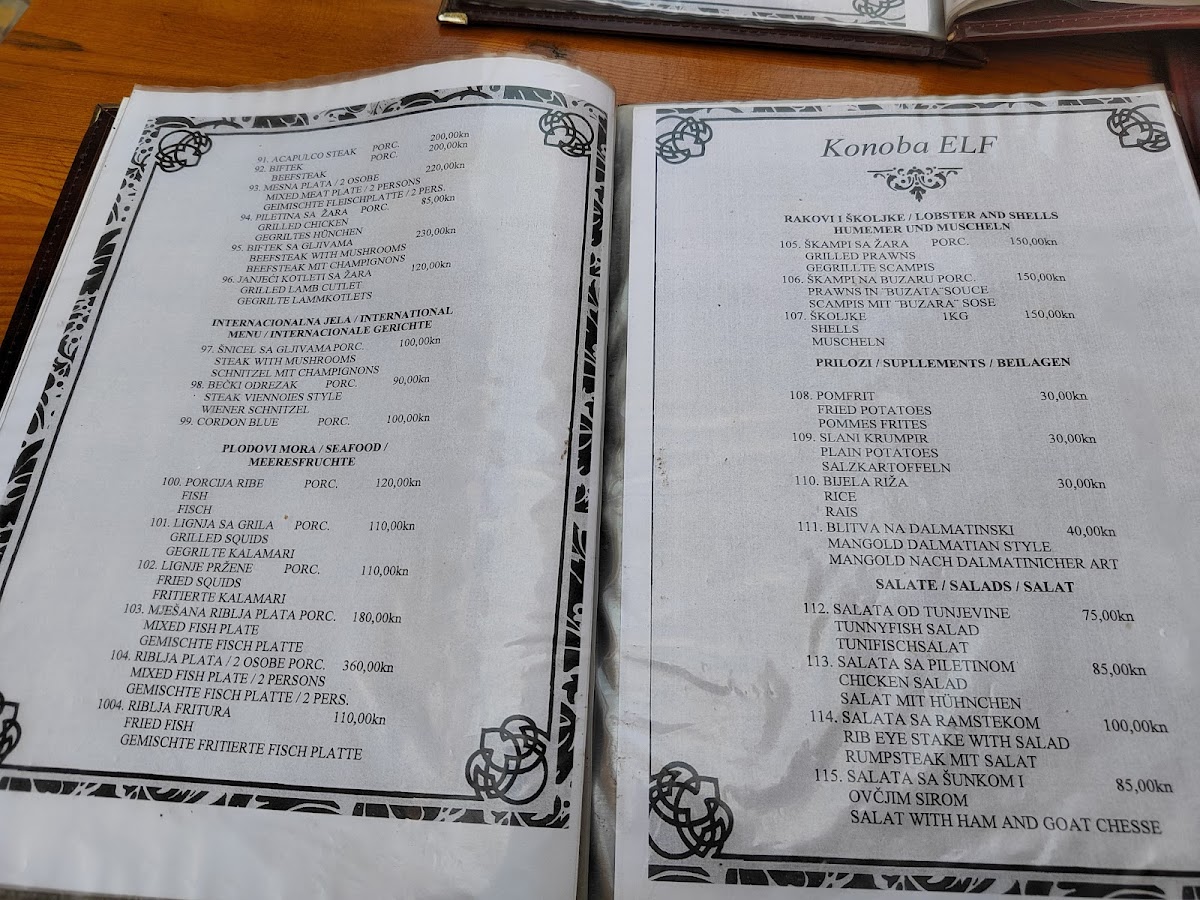 91. ACAPULCO STEAK PORC. 200,00kn
92. BIFTEK PORC. 200,00kn
BEEFSTEAK
93. MESNA PLATA / 2 OSOBE 220,00kn
MIXED MEAT PLATE / 2 PERSONS
GEIMISCHTE FLEISCHPLATTE / 2 PERS.
94. PILETINA SA ŽARA PORC. 85,00kn
GRILLED CHICKEN
GEGRILTES HÜNCHEN
95. BIFTEK SA GLJIVAMA 230,00kn
BEEFSTEAK WITH MUSHROOMS
BEEFSTEAK MIT CHAMPIGNONS
96. JANJEĆI KOTLETI SA ŽARA 120,00kn
GRILLED LAMB CUTLET
GEGRILTE LAMMKOTLETS
INTERNACIONALNA JELA / INTERNATIONAL
MENU / INTERNACIONALE GERICHTE
97. ŠNICEL SA GLJIVAMA PORC. 100,00kn
STEAK WITH MUSHROOMS
SCHNITZEL MIT CHAMPIGNONS
98. BEČKI ODREZAK PORC. 90,00kn
STEAK VIENNOIES STYLE
WIENER SCHNITZEL
99. CORDON BLUE PORC. 100,00kn
PLODOVI MORA / SEAFOOD /
MEERESFRUCHTE
100. PORCIJA RIBE PORC. 120,00kn
FISH
FISCH
101. LIGNJA SA GRILA PORC. 110,00kn
GRILLED SQUIDS
GEGRILTE KALAMARI
102. LIGNJE PRŽENE PORC. 110,00kn
FRIED SQUIDS
FRITIERTE KALAMARI
103. MJEŠANA RIBLJA PLATA PORC. 180,00kn
MIXED FISH PLATE
GEMISCHTE FISCH PLATTE
104. RIBLJA PLATA / 2 OSOBE PORC. 360,00kn
MIXED FISH PLATE / 2 PERSONS
GEMISCHTE FISCH PLATTE / 2 PERS.
1004. RIBLJA FRITURA 110,00kn
FRIED FISH
GEMISCHTE FRITIERTE FISCH PLATTE
Konoba ELF
RAKOVI I ŠKOLJKE / LOBSTER AND SHELLS
HUMEMER UND MUSCHELN
105. ŠKAMPI SA ŽARA PORC. 150,00kn
GRILLED PRAWNS
GEGRILLTE SCAMPIS
106. ŠKAMPI NA BUZARU PORC. 150,00kn
PRAWNS IN "BUZATA" SOUCE
SCAMPIS MIT "BUZARA" SOSE
107. ŠKOLJKE 1KG 150,00kn
SHELLS
MUSCHELN
PRILOZI / SUPLLEMENTS / BEILAGEN
108. POMFRIT 30,00kn
FRIED POTATOES
POMMES FRITES
109. SLANI KRUMPIR 30,00kn
PLAIN POTATOES
SALZKARTOFFELN
110. BIJELA RIŽA 30,00kn
RICE
RAIS
111. BLITVA NA DALMATINSKI 40,00kn
MANGOLD DALMATIAN STYLE
MANGOLD NACH DALMATINICHER ART
SALATE / SALADS / SALAT
112. SALATA OD TUNJEVINE 75,00kn
TUNNYFISH SALAD
TUNIFISCHSALAT
113. SALATA SA PILETINOM 85,00kn
CHICKEN SALAD
SALAT MIT HÜHNCHEN
114. SALATA SA RAMSTEKOM 100,00kn
RIB EYE STAKE WITH SALAD
RUMPSTEAK MIT SALAT
115. SALATA SA ŠUNKOM I 85,00kn
OVČJIM SIROM
SALAT WITH HAM AND GOAT CHESSE